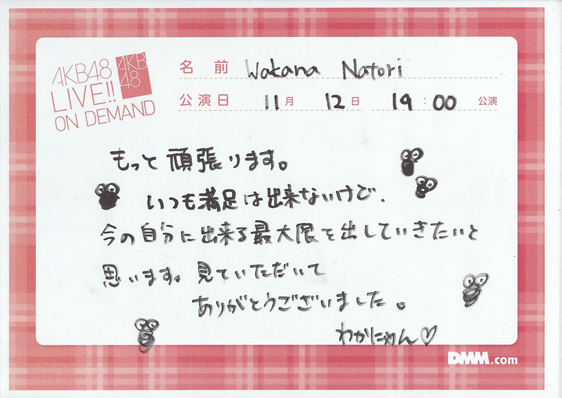 AKB48
LIVE!!
ON DEMAND
AKB
48
名前 Wakana Natori
公演日 11月 12日 19:00 公演
もっと頑張ります。
いつも満足は出来ないけど、
今の自分に出来る最大限を出していきたいと
思います。見ていただいて
ありがとうございました。
わかにゃん♡
DMM.com